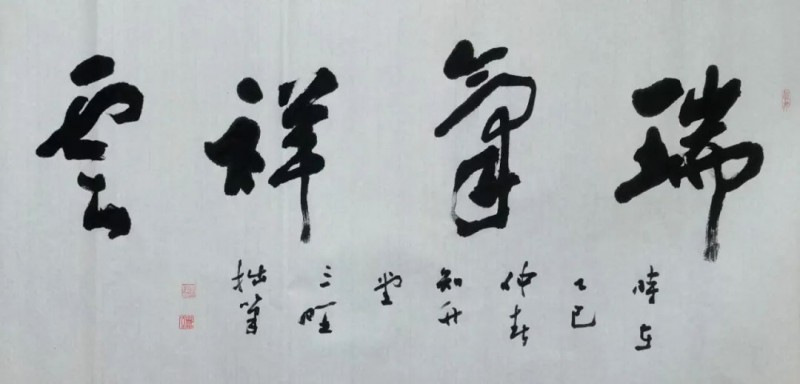 瑞氣祥雲
時在
乙巳
仲春
知升
堂
三旺
拙筆